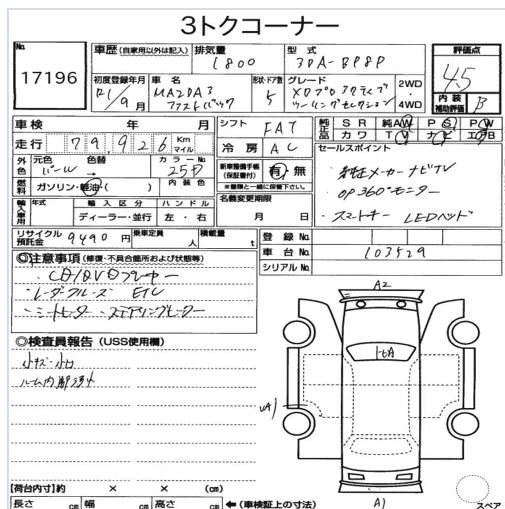 3トクコーナー
No.
17196
車歴 (自家用以外は記入) 排気量 型式
1800 3DA-BP8P
評価点
4.5
内装補助評価 B
初度登録年月 車名 形状・ドア数 グレード 2WD・4WD
R1/9月 MAZDA3 ファストバック 5 XDプロアクティブ ツーリングセレクション
車検 年 月
シフト FAT
純正品 SR 純AW PS PW
カワ TV ナビ エアB
走行 79,926 Km マイル
冷房 AC
外色 元色 色替 カラーNo.
パール → 25D
内装色
燃料 ガソリン・軽油( )
新車整備手帳 (保証書付) 有・無
※書類と一緒に保管下さい。
セールスポイント
純正メーカーナビTV
OP 360°モニター
スマートキー LEDヘッド
輸入車用 年式 輸入区分 ハンドル
ディーラー・並行 左・右
名義変更期限
月 日
リサイクル預託金 9490円 乗車定員 人 積載量 t
登録No.
車台No. 103529
シリアルNo.
◎注意事項 (修復・不具合箇所および状態等)
CD/DVDプレーヤー
レーダクルーズ ETC
シートヒーター ステアリングヒーター
◎検査員報告 (USS使用欄)
小キズ・小凹
ルーム内
A2
A1
【荷台内寸】約 × × (cm)
長さ cm 幅 cm 高さ cm ←(車検証上の寸法)
スペア